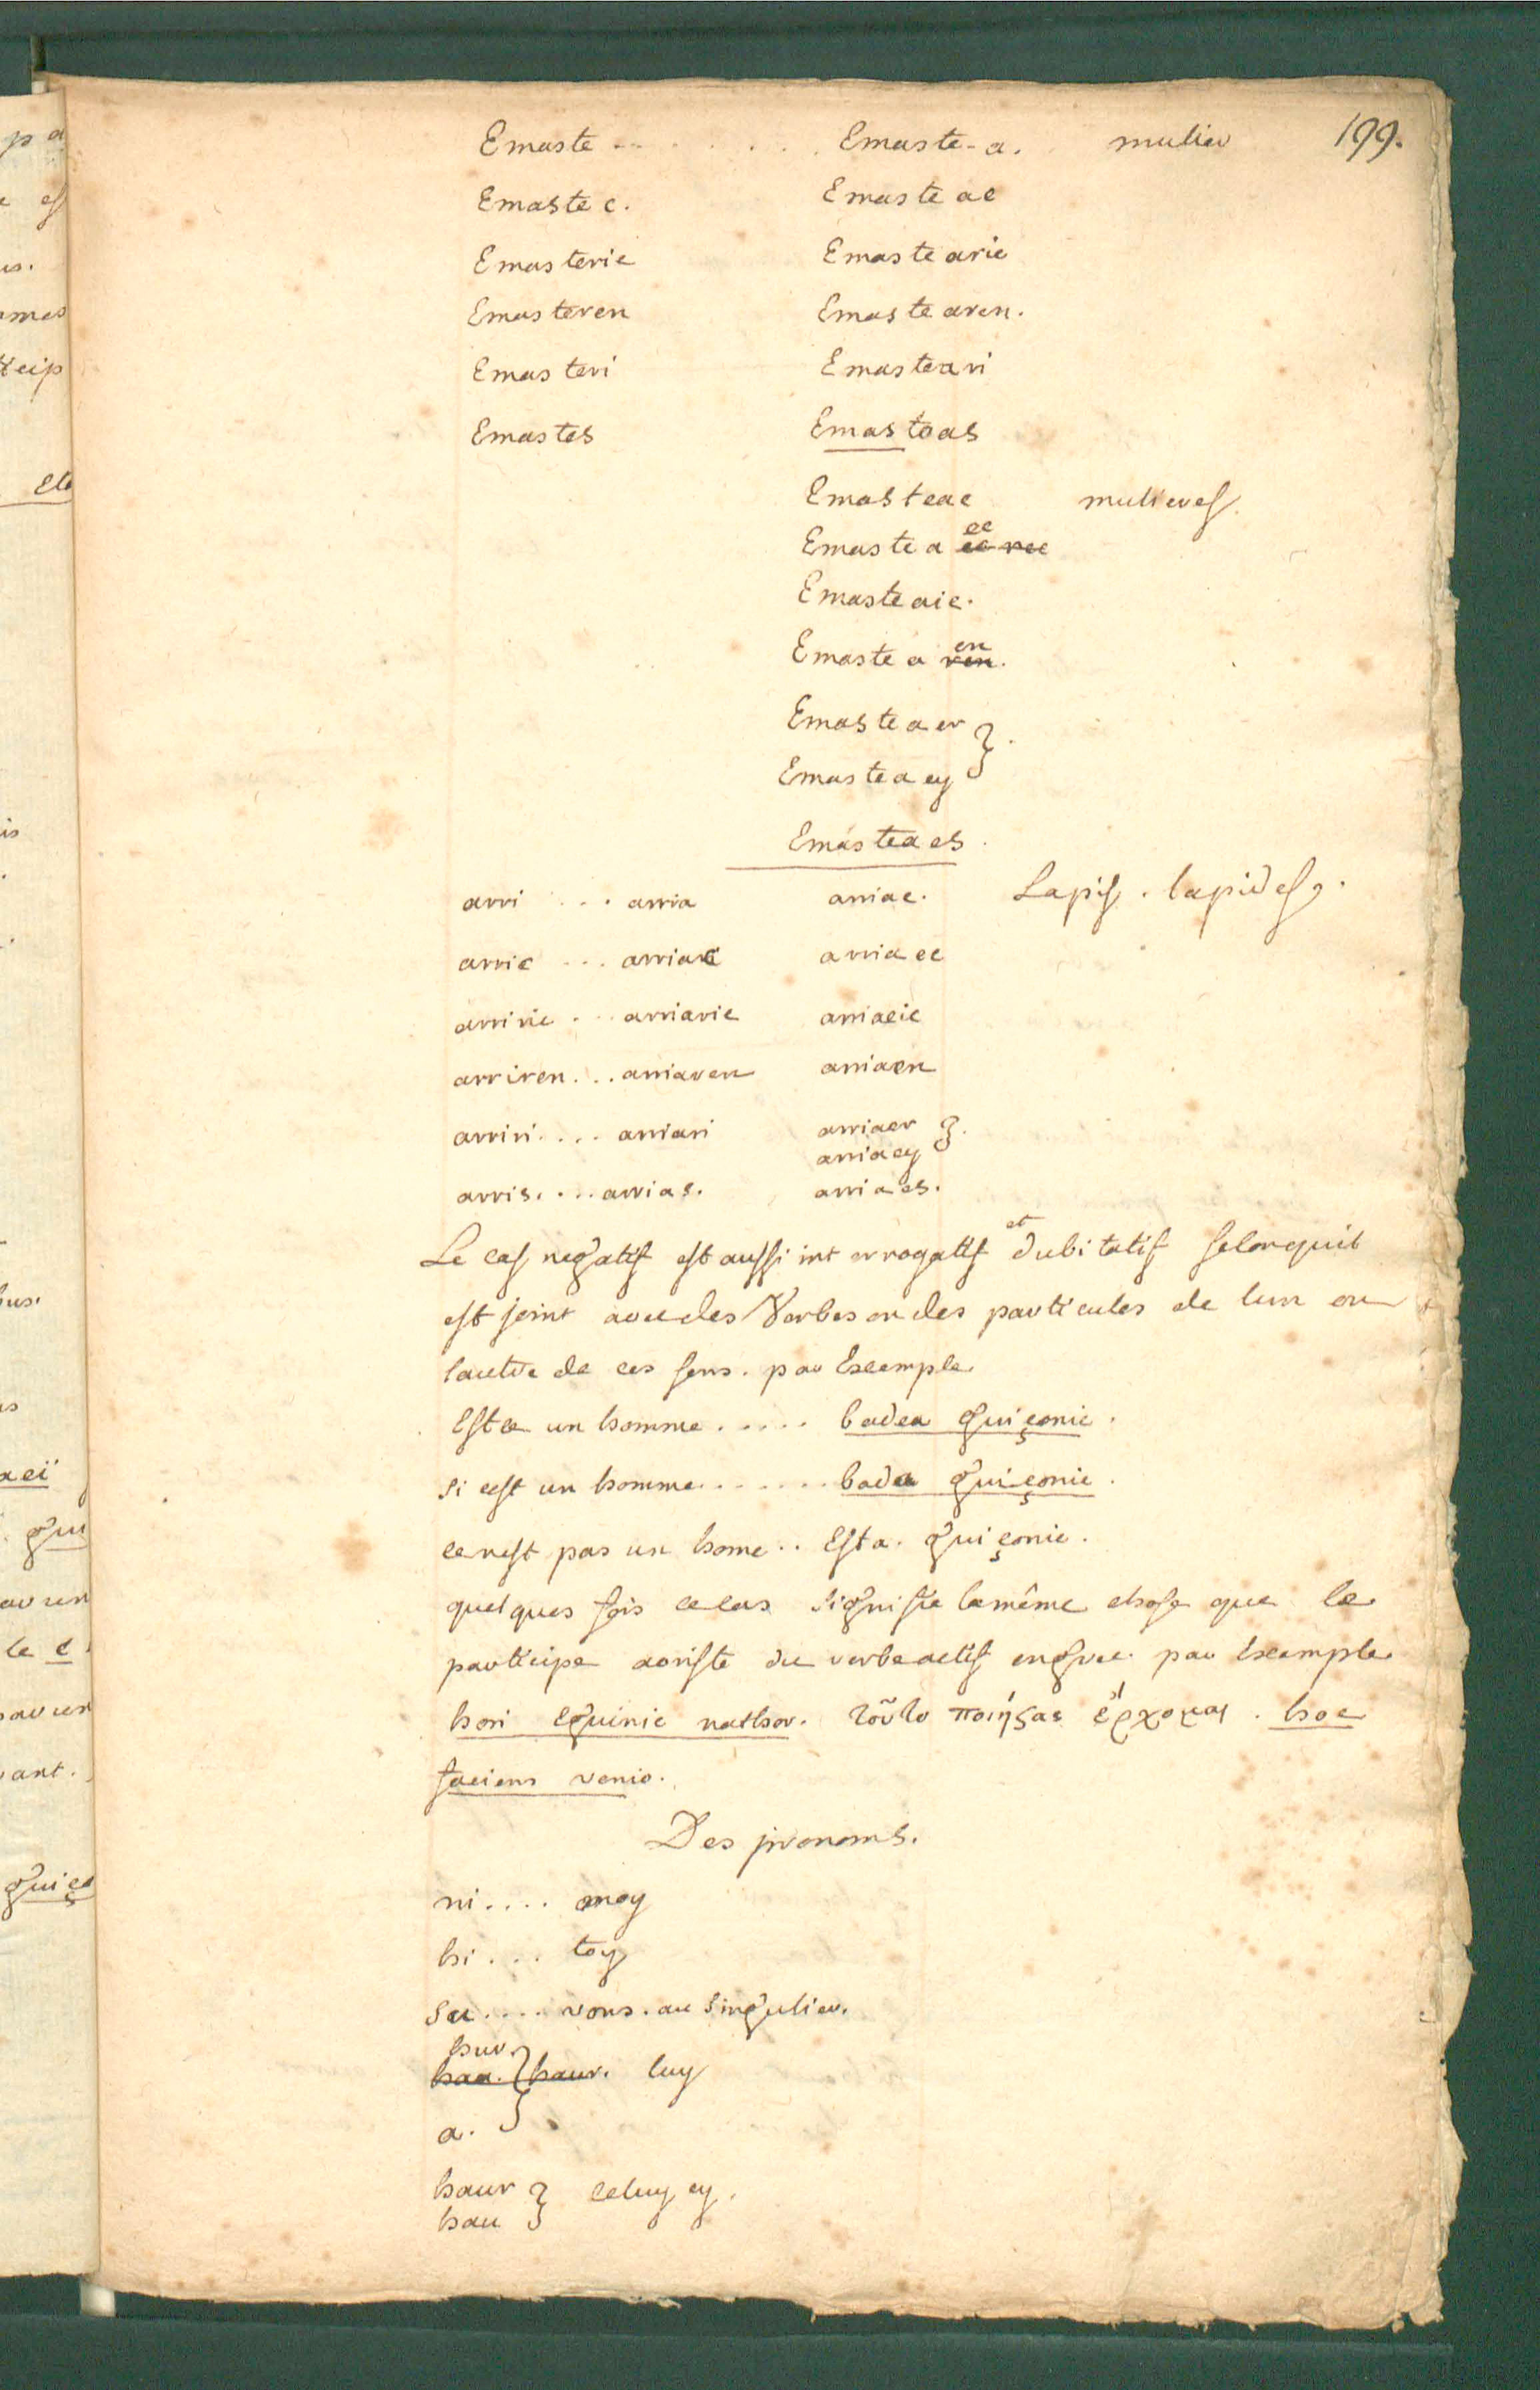 199.
Emaste . . . . . . Emaste-a. mulier
Emaste c. Emaste ac
Emasteric Emaste aric
Emasteren Emaste aren.
Emasteri Emasteari
Emastes Emasteas
Emasteac mulieres.
Emaste a ec
Emasteaic.
Emaste a en
Emaste a er
Emaste a ey
Emasteaes.
arri . . . arria arriac. Lapis. lapides.
arric . . . arriac arriaec
arriric . . . arriaric arriaeic
arriren . . . arriaren arriaen
arriri . . . . arriari arriaer
arriaey
arris. . . . arrias. arriaes.
Le cas negatif est aussi interrogatif et dubitatif selon quil
est joint avec des Verbes ou des particules de lun ou
lautre de ces sens. par Exemple
Est ce un homme . . . . . badea guiçonic.
si cest un homme . . . . . . bada guiçonic.
ce nest pas un home . . Esta. guiçonic.
quelques fois ce cas signifie la même chose que le
participe aoriste du verbe actif en grec. par Exemple
hori eguinic nathor. τοῦτο ποιήσας ἔρχομαι. hoc
faciens venio.
Des pronoms.
ni . . . . moy
hi . . . toy
su . . . . vous. au singulier.
hur.
haa. haur. luy
a.
haur
hau celuy cy.